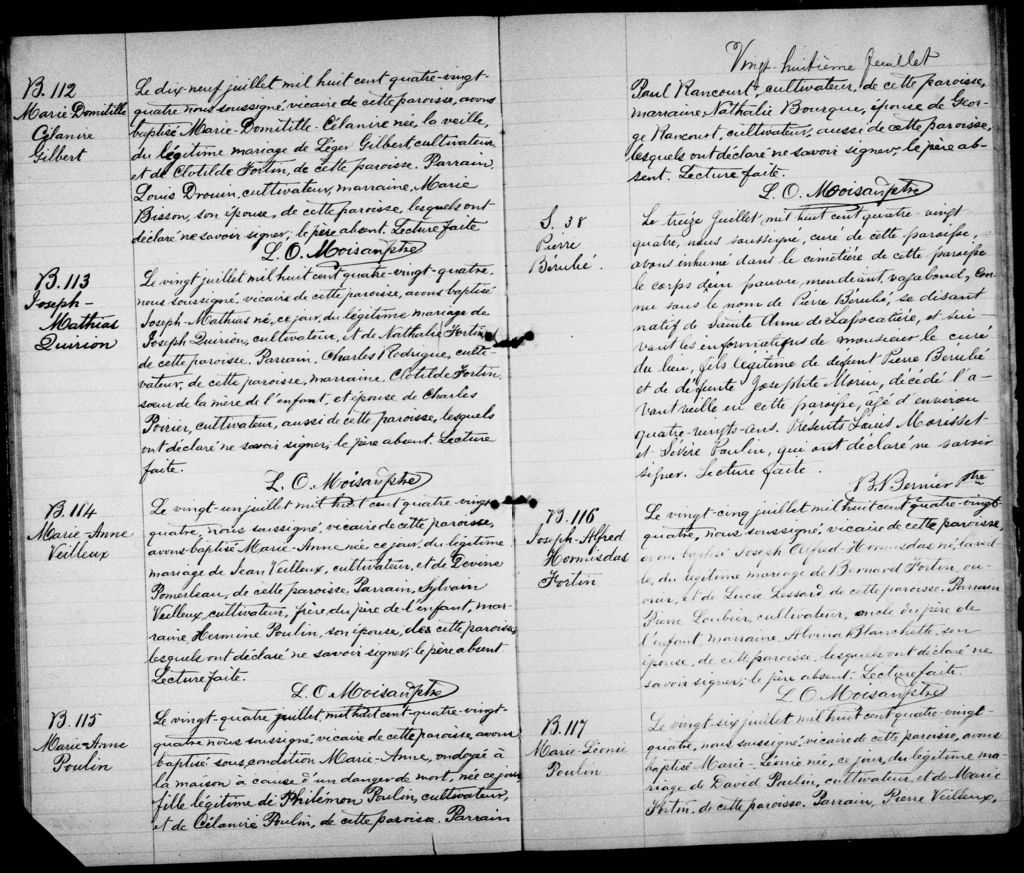 B. 112
Marie Domitille
Célanire
Gilbert
Le dix-neuf juillet mil huit cent quatre-vingt-
quatre nous soussigné, vicaire de cette paroisse, avons
baptisé Marie-Domitille-Célanire née, la veille,
du légitime mariage de Léger Gilbert cultivateur
et de Clotilde Fortin, de cette paroisse. Parrain
Louis Drouin, cultivateur, marraine, Marie
Bisson, son épouse, de cette paroisse, lesquels ont
déclaré ne savoir signer, le père absent. Lecture faite
L. O. Moisan ptre
B. 113
Joseph-
Mathias
Quirion
Le vingt juillet mil huit cent quatre-vingt-quatre,
nous soussigné, vicaire de cette paroisse, avons baptisé
Joseph-Mathias né, ce jour, du légitime mariage de
Joseph Quirion, cultivateur, et de Nathalie Fortin
de cette paroisse. Parrain, Charles Rodrigue, culti-
vateur, de cette paroisse, marraine Clotilde Fortin
sœur de la mère de l'enfant, et épouse de Charles
Poirier, cultivateur, aussi de cette paroisse, lesquels
ont déclaré ne savoir signer, le père absent. Lecture
faite.
L. O. Moisan ptre
B. 114
Marie-Anne
Veilleux
Le vingt-un juillet mil huit cent quatre-vingt
quatre, nous soussigné, vicaire de cette paroisse,
avons baptisé Marie-Anne née, ce jour, du légitime
mariage de Jean Veilleux, cultivateur, et de Devine
Pomerleau, de cette paroisse. Parrain, Sylvain
Veilleux, cultivateur, frère du père de l'enfant, mar-
raine Hermine Poulin, son épouse, de cette paroisse
lesquels ont déclaré ne savoir signer, le père absent
Lecture faite.
L. O. Moisan ptre
B. 115
Marie-Anne
Poulin
Le vingt-quatre juillet, mil huit cent-quatre-vingt-
quatre nous soussigné, vicaire de cette paroisse, avons
baptisé sous condition Marie-Anne, ondoyée à
la maison à cause d'un danger de mort, née ce jour
fille légitime de Philémon Poulin, cultivateur,
et de Célanire Poulin, de cette paroisse. Parrain
Vingt-huitième feuillet
Paul Rancourt, cultivateur, de cette paroisse,
marraine Nathalie Bourque, épouse de Geor-
ge Rancourt, cultivateur, aussi de cette paroisse,
lesquels ont déclaré ne savoir signer, le père ab-
sent. Lecture faite.
L. O. Moisan ptre
S. 38
Pierre
Bérubé.
Le treize Juillet, mil huit cent quatre-vingt
quatre, nous soussigné, curé de cette paroisse,
avons inhumé dans le cimetière de cette paroisse
le corps d'un pauvre, mendiant, vagabond, con-
nu sous le nom de Pierre Bérubé, se disant
natif de Sainte Anne de Lapocatière, et sui-
vant les informations de monsieur le curé
du lieu, fils légitime de défunt Pierre Berubé
et de défunte Josephte Morin, décédé l'a-
vant veille en cette paroisse, agé d'environ
quatre-vingts-ans. Présents Louis Morisset
et Sévère Poulin, qui ont déclaré ne savoir
signer. Lecture faite.
B. Bernier Ptre
B. 116
Joseph-Alfred
Hormisdas
Fortin
Le vingt-cinq juillet mil huit cent quatre-vingt
quatre, nous soussigné, vicaire de cette paroisse,
avons baptisé Joseph Alfred-Hormisdas né, la veil-
le, du légitime mariage de Bernard Fortin, ou-
vrier, et de Lucie Lessard de cette paroisse. Parrain
Pierre Loubier, cultivateur, oncle du père de
l'enfant, marraine, Alvina Blanchette, son
épouse, de cette paroisse, lesquels ont déclaré ne
savoir signer, le père absent. Lecture faite.
L. O. Moisan ptre
B. 117
Marie-Léonie
Poulin
Le vingt-six juillet mil huit cent quatre-vingt-
quatre, nous soussigné, vicaire de cette paroisse, avons
baptisé Marie-Léonie née, ce jour, du légitime ma-
riage de David Poulin, cultivateur, et de Marie
Fortin, de cette paroisse. Parrain, Pierre Veilleux,